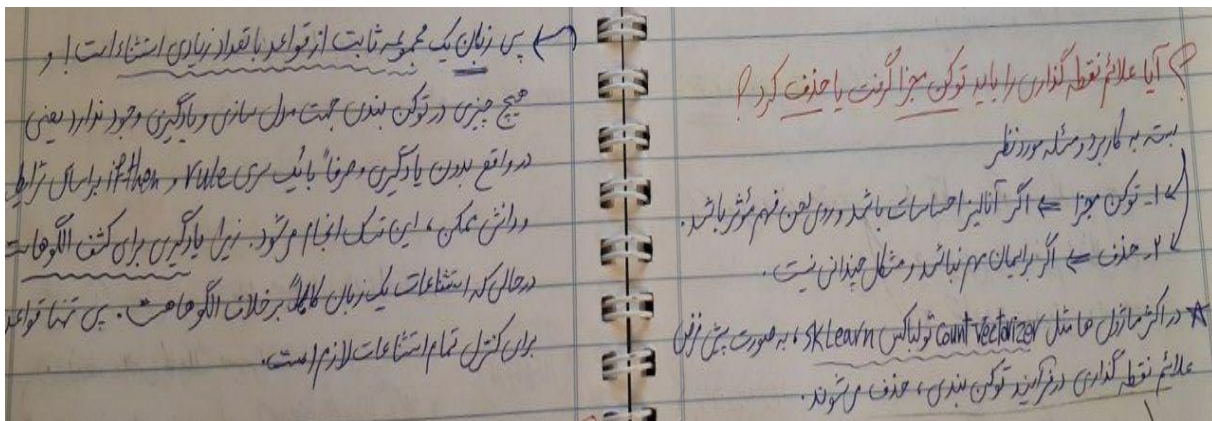 ؟ آیا علائم نقطه گذاری را باید توکن مجزا گرفت یا حذف کرد؟
بسته به کاربرد و مسئله مورد نظر
۱- توکن مجزا ⇐ اگر آنالیز احساسات باشد و روی لحن فهم مؤثر باشد.
۲- حذف ⇐ اگر برایمان مهم نباشد و مشکل چندانی نیست.
☆ در اکثر ماژول ها مثل count vectorizer تولباکس sklearn، به صورت پیش فرض
علائم نقطه گذاری در فرآیند توکن بندی، حذف می شوند.
پس زبان یک مجموعه ثابت از قواعد با تعداد زیادی استثناء است! و
هیچ چیزی در توکن بندی جهت مدل سازی و یادگیری وجود ندارد یعنی
در واقع بدون یادگیری و صرفاً با یک سری rule و if-then براساس شرایط
و دانش ممکن، این تسک انجام می شود. زیرا یادگیری برای کشف الگوهاست
درحالی که استثناعات یک زبان کاملاً برخلاف الگوهاست. پس تنها قواعد
برای کنترل تمام استثناعات لازم است.